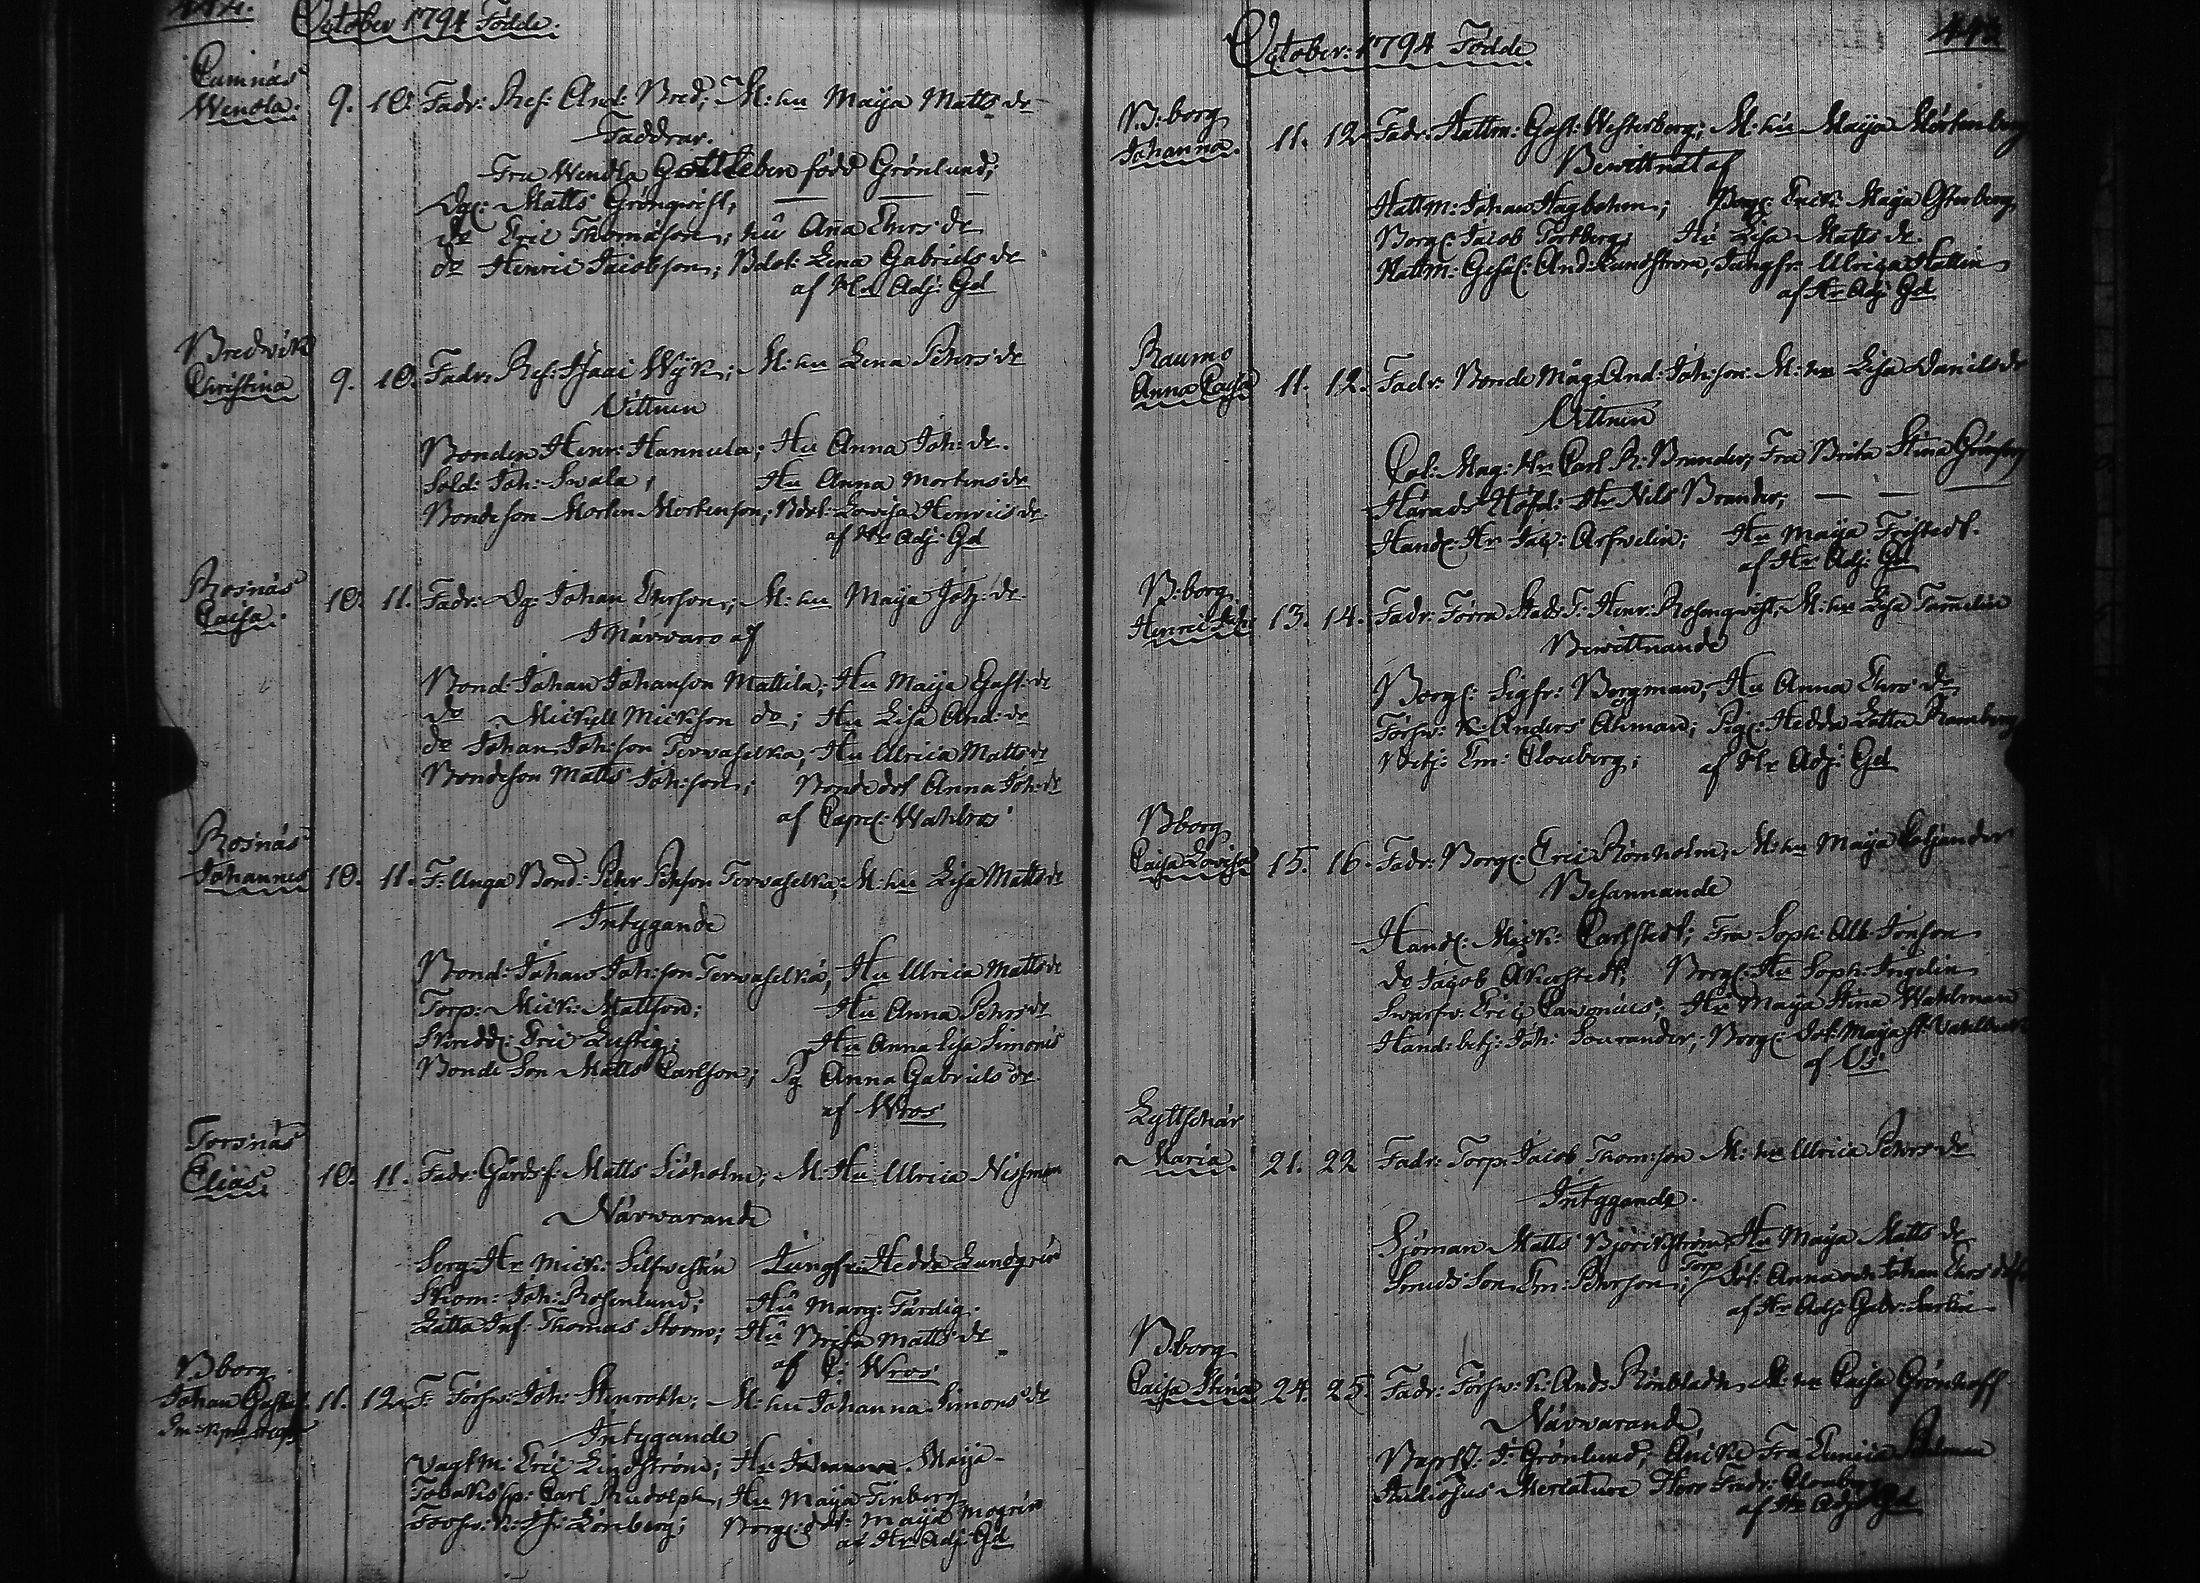 October 1794 Födde.
Cumnäs
Wendla. 9. 10. Fadr: Ref: And: Bred; M: hu Maija Matts dr
Faddrar.
Fru Wendla Gottleben född Grönlund;
Dgl: Matts Grönqwist;
do Eric Thomason; hu Aña Ehrs dr
do Henric Jacobson; Bdot: Lena Gabriels dr
af Hr Adj: Gd
Bredwik
Christina 9. 10. Fadr: Ref: Isaac Wijk; M: hu Lena Pehrs dr
Vittnen
Bonden Henr: Hannula; Hu Anna Joh: dr.
Sold: Joh: Swala; Hu Anna Mortens dr
Bondeson Morten Mortenson; Bdot: Lovisa Henrics dr.
af Hr Adj: Gd
Rosnäs
Caisa. 10. 11. Fadr: Dg: Johan Ehrson; M: hu Maija Joh: dr.
I Närwaro af
Bond: Johan Johanson Mattila; Hu Maija Gust: dr
do Mickell Mickson do; Hu Lisa And: dr
do Johan Joh:son Terwaselka; Hu Ulrica Matts dr
Bondeson Matts Joh:son; Bonde dot Anna Joh: dr
af Capel: Wahlros
Rosnäs
Johannes 10. 11. F: Unga Bond: Pehr Pehson Terwaselka; M: hu Lisa Matts dr
Intygande
Bond: Johan Joh:son Terwaselkä; Hu Ulrica Matts dr
Torp: Mick: Mattson; Hu Anna Pehrs dr
Skredd: Eric Lustig; Hu Anna Lisa Simons
Bonde Son Matts Carlson; Pg Anna Gabriels dr.
af Wros
Torsnäs
Elias. 10. 11. Fadr: Gårdsf: Matts Siöholm; M: Hu Ulrica Nissman
Närwarande
Serg: Hr Mick: Silfwestin Jungfru Hedda Lundgren
Skom: Joh: Rosenlund; Hu Marg: Färdig.
Latta Inf: Thomas Storm; Hu Brita Matts dr
af C: Wros
Bborg.
Johan Gustaf 11. 12. F: Försw: Joh: Stenroth; M: hu Johanna Simons dr
Intygande
Vagtm: Eric Lindström; Hu Johanna Maija
Tobaks sp: Carl Rudolph; Hu Maija Finberg
Försw: K: Lönberg; Borg: dot: Maija Mogrén
af Hr Adj: Gd
October: 1794 Födde
443
B:borg
Johanna. 11. 12. Fadr. Hattm: Gust: Westerberg; M: hu Maija Mortenberg
Bewittnat af
Hattm: Johan Hagbohm; Borg: Enck: Maija Österberg
Borg: Jacob Fortberg; Hu Lisa Matts dr.
Hattm: Gesäl: And: Lundstrom, Jungfr: Ulrica Hallin
af Hr Adj Gd
Raumo
Anna Caisa 11. 12. Fadr: Bonde Måg And: Joh:son. M: hu Lisa Daniels dr
Vittnen
Col: Mag: Hr Carl R: Brander; Fru Brita Stina
Härads Höfd: Hr Nils Brander;
Hand: Hr Jac: Arfwelin; Hu Maija Fristedt.
af Hr Adj: Gd
B:borg.
Henric Joh: 13. 14. Fadr: Förra Stads T: Henr: Rosenqwist; M: hu Lisa Tamelin
Bewittnande
Borg: Sigfr: Bergman; Hu Anna Ehrs dr
Försw: K: Anders Ahman; Pig: Hedda Latta Ramberg
Betj: Em: Clouberg; af Hr Adj: Gd
Bborg
Caisa Lovisa 15. 16. Fadr: Borg: Eric Rönholm; M: hu Maija Coljander
Besannande
Handl: Mick: Carlstedt; Fru Soph: Alb: Jonson
do Jacob Åkerstedt; Borg: Hu Soph: Ingelin
Swarfv: Eric Cawonius; Hu Maija Stina Wahlman
Hand: betj: Joh: Sourander; Borg: Dot: Maija St: Vahlberg
af Cs
Lyttskär
Maria. 21. 22 Fadr: Torp: Jacob Thom:son M: hu Ulrica Pehrs dr
Intygande.
Sjöman Matts Björckström; Hu Maija Matts dr
Smeds Son Em: Pehrson; Torp Dot: Anna och Johan Ehrs
af Hr Adj: Gabr: Sarlin
B:borg
Caisa Stina 24. 25. Fadr: Försw: K: And: Rönbladh; M: hu Caisa Grönhoff
Närwarand
J: Grönlund; Ancke Fru Eunica Ahlman
Studiosus Herr Fredr: Clouberg
af Hr Adj Gd